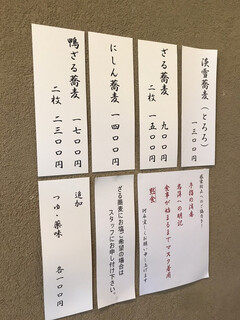 淡雪蕎麦(とろろ)
一三〇〇円
ざる蕎麦 九〇〇円
二枚 一五〇〇円
にしん蕎麦
一四〇〇円
鴨ざる蕎麦 一七〇〇円
二枚 二三〇〇円
手指の消毒
名簿への明記
食事が始まるまでマスク着用
黙食
ざる蕎麦にお塩ご希望の場合は
スタッフにお申し付け下さい。
追加
つゆ・薬味 各一〇〇円